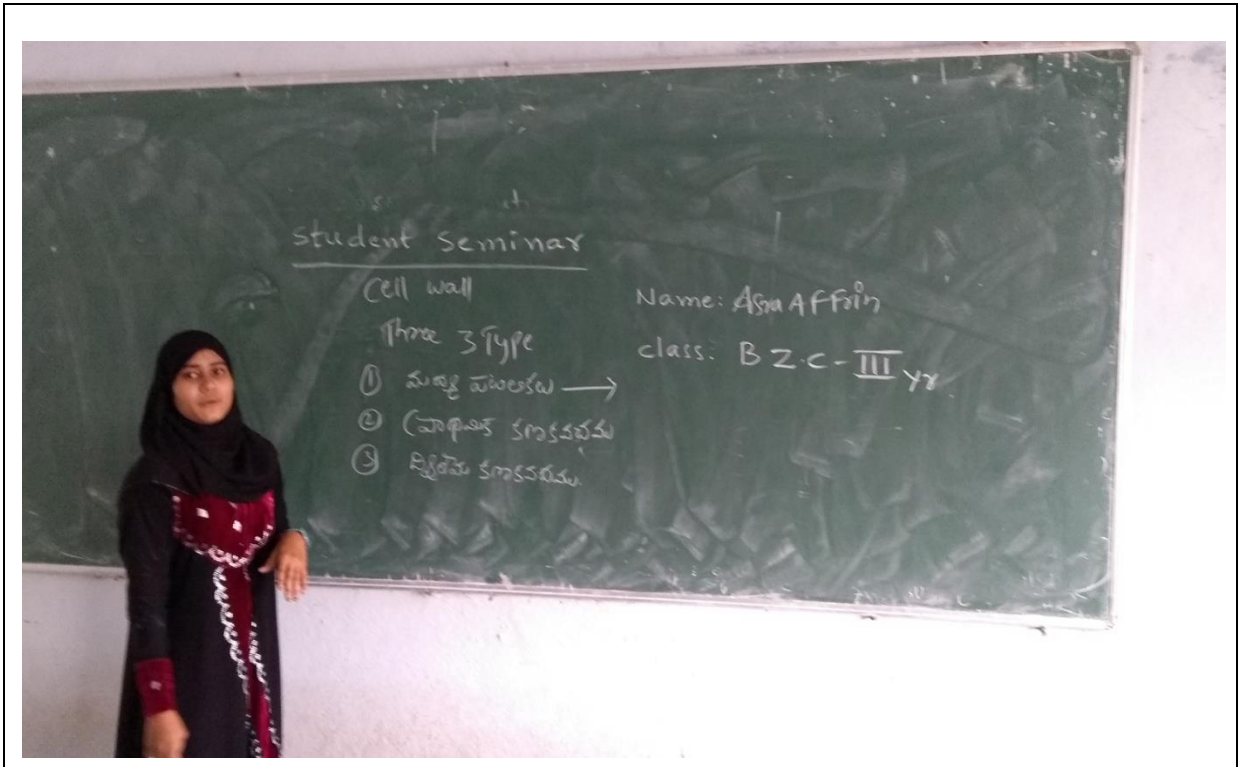 Student Seminar
Cell wall
Three 3 Type
① మధ్య పటలికలు →
② ప్రాథమిక కణకవచము
③ ద్వితీయ కణకవచము.
Name: Asra Affrin
class: B Z.C - III yr.